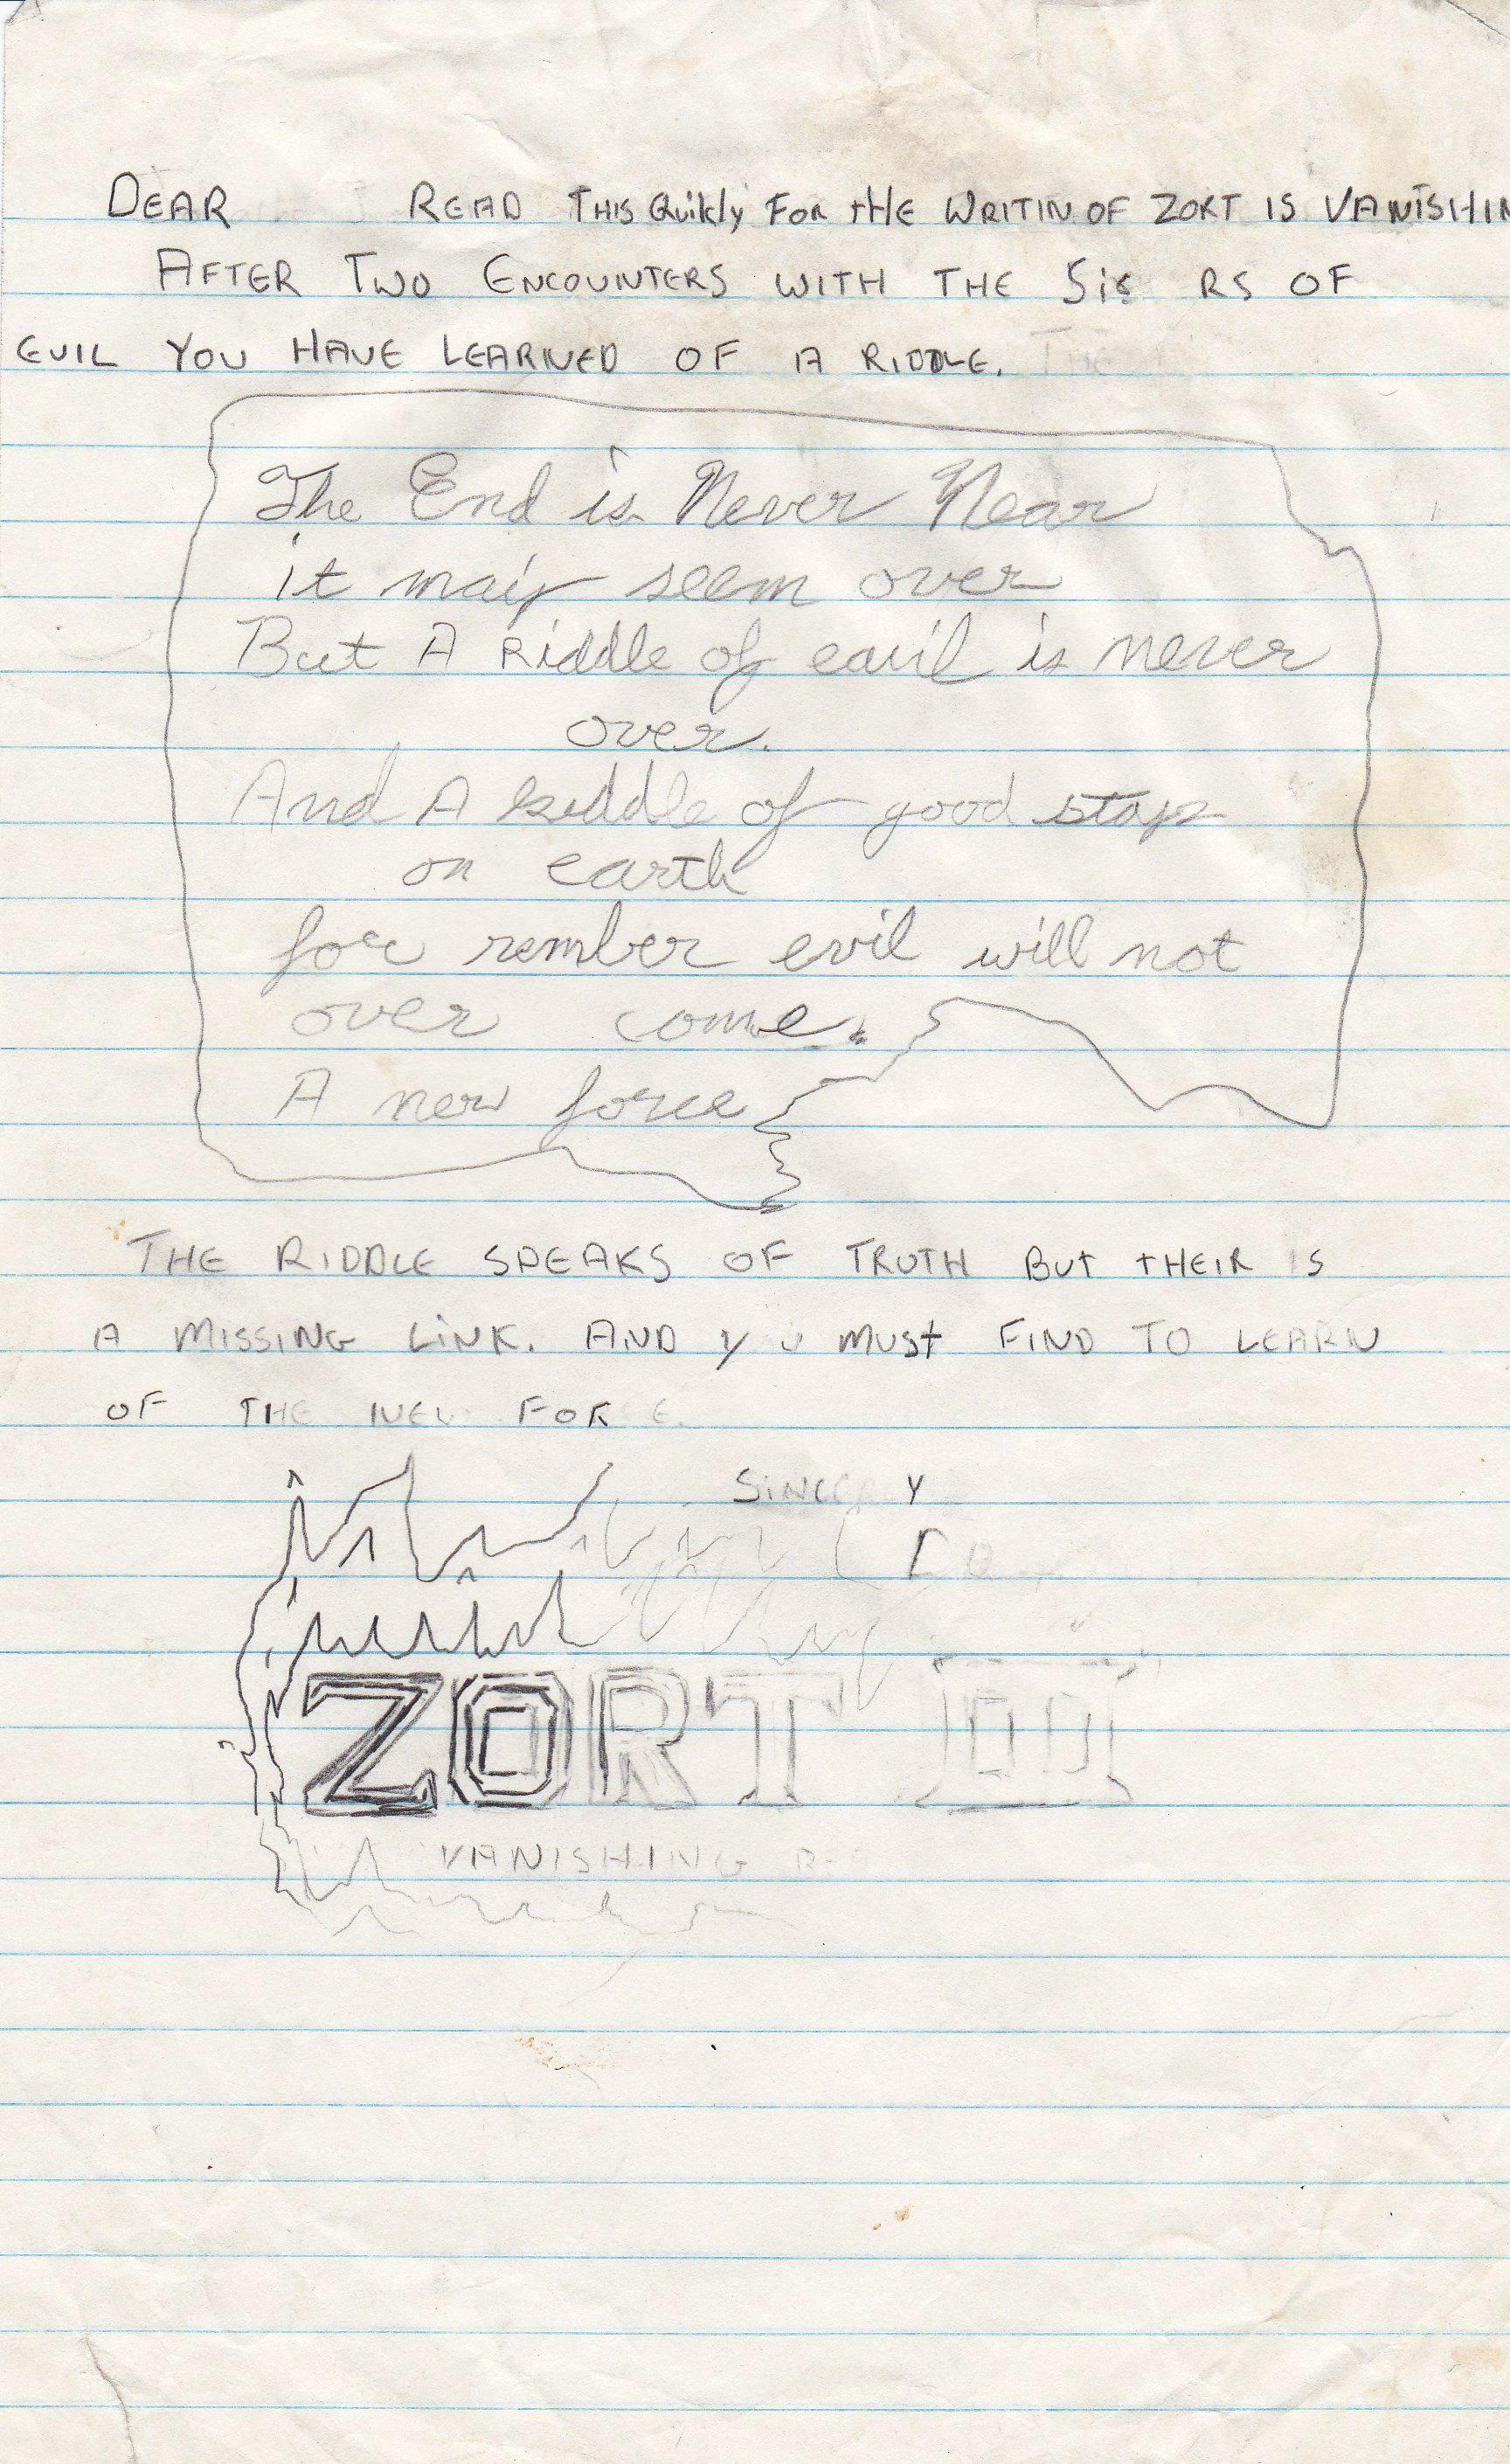 DEAR READ THIS Quikly FOR tHE WRITIN OF ZORT IS VANISHIN
AFTER TWO ENCOUNTERS WITH THE SiS RS OF
EVIL YOU HAVE LEARNED OF A RIDDLE. THE
The End is Never Near
it may seem over
But A Riddle of eavil is never
over.
And A Riddle of good stays
on earth
for rember evil will not
over come.
A new force
THE RIDDLE SPEAKS OF TRUTH BUt tHEIR IS
A MISSING LiNK. AND Y U MUSt FIND TO LEARN
OF THE NEW FOR E.
SiNCER Y
ZORT III
VANISHING